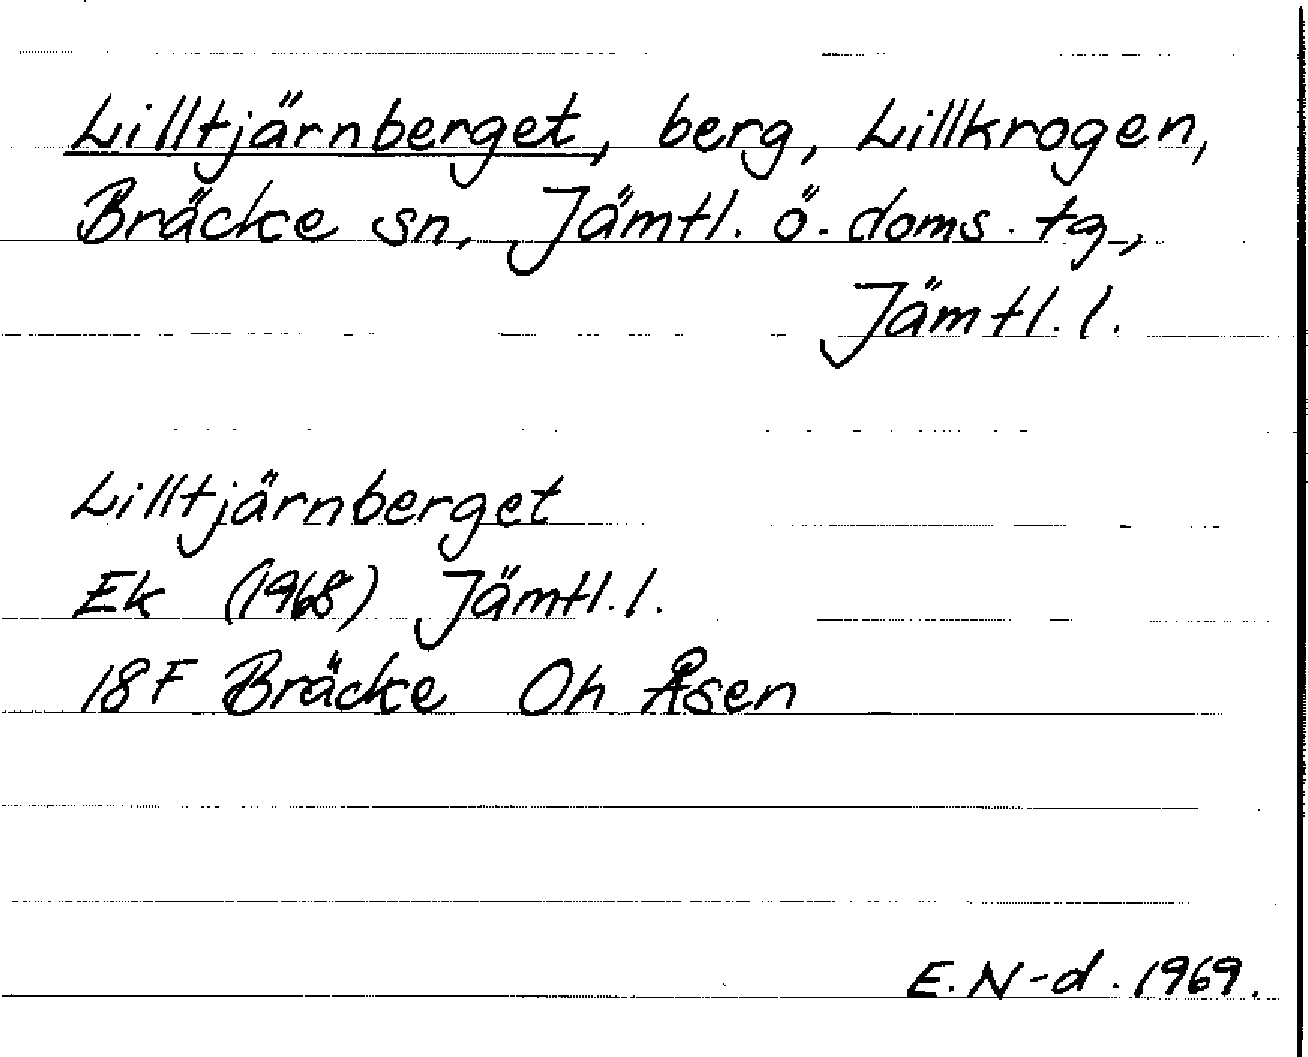 Lilltjärnberget, berg, Lillkrogen,
Bräcke sn, Jämtl. ö. doms. tg.,
Jämtl. l.
Lilltjärnberget
Ek (1968) Jämtl. l.
18F Bräcke Oh Åsen
E. N-d. 1969.